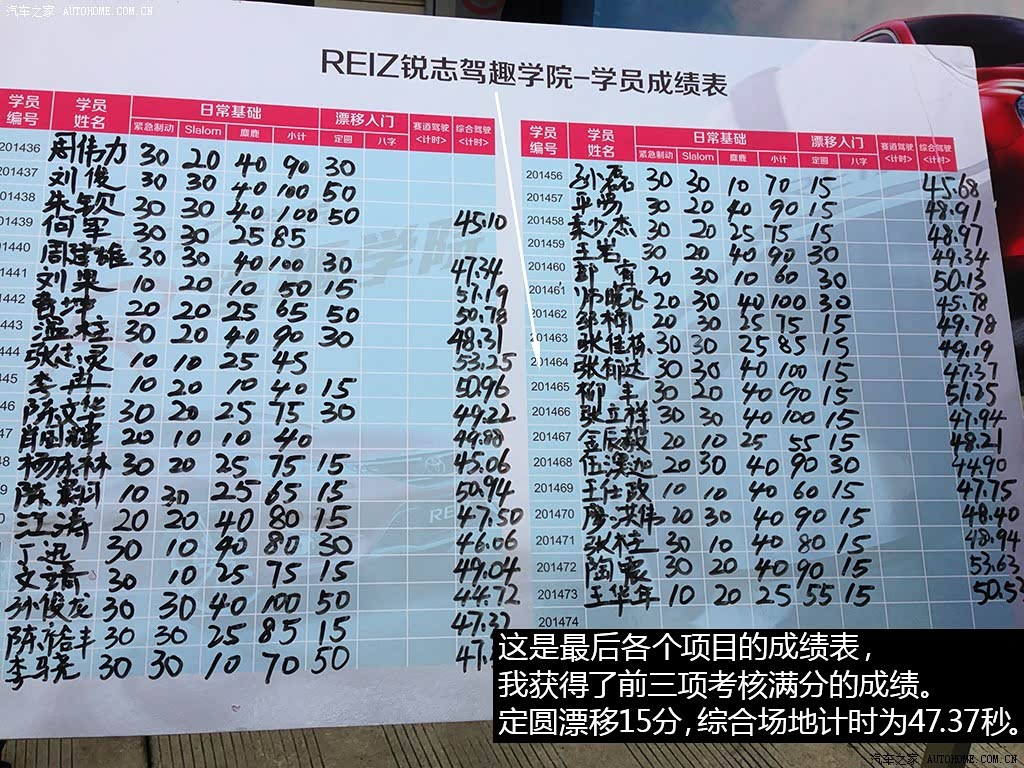 汽车之家 AUTOHOME.COM.CN
REIZ锐志驾趣学院-学员成绩表
学员编号 学员姓名 日常基础 漂移入门 赛道驾驶<计时> 综合驾驶<计时>
紧急制动 Slalom 麋鹿 小计 定圆 八字
201436 周伟力 30 20 40 90 30
201437 刘俊 30 30 40 100 50
201438 30 30 40 100 50 45.10
201439 何军 30 30 25 85
201440 周建雄 30 30 40 100 30 47.34
441 刘果 10 20 10 50 15 51.19
442 曹坤 20 20 25 65 50 50.78
443 温柱 30 20 40 90 30 48.31
444 张志灵 10 10 25 45 53.25
445 李冉 10 20 10 40 15 50.96
46 陈文华 30 20 25 75 30 49.22
47 肖国辉 20 10 10 40 49.88
48 杨东林 30 20 25 75 15 45.06
9 陈 10 30 25 65 15 50.94
0 江涛 20 20 40 80 15 47.50
丁迅 30 10 40 80 30 46.06
文 30 10 25 75 15 49.04
孙俊龙 30 30 40 100 50 44.72
陈裕丰 30 30 25 85 15 47.32
李马亮 30 30 10 70 50 47.
学员编号 学员姓名 日常基础 漂移入门 赛道驾驶<计时> 综合驾驶<计时>
紧急制动 Slalom 麋鹿 小计 定圆 八字
201456 孙磊 30 30 10 70 15 45.68
201457 30 20 40 90 15 48.91
201458 少杰 30 20 25 75 15 48.97
201459 王岩 30 20 40 90 30 49.34
201460 20 30 10 60 30 50.13
201461 晓飞 20 30 40 100 30 45.78
20 30 25 75 15 49.78
201463 张佳栋 30 30 25 85 15 49.19
201464 张郁达 30 30 40 100 15 47.37
201465 柳丰 30 20 40 90 15 51.85
201466 张立祥 30 30 40 100 15 47.94
201467 金辰毅 20 10 25 55 15 48.21
201468 20 30 40 90 30 44.90
201469 王仕政 10 10 40 60 15 47.75
201470 廖洪伟 20 30 40 90 15 48.40
201471 张柱 30 10 40 80 15 48.94
201472 陶震 30 20 40 90 15 53.63
201473 王华年 10 20 25 55 15 50.52
201474
这是最后各个项目的成绩表,
我获得了前三项考核满分的成绩。
定圆漂移15分,综合场地计时为47.37秒。
汽车之家 AUTOHOME.COM.CN